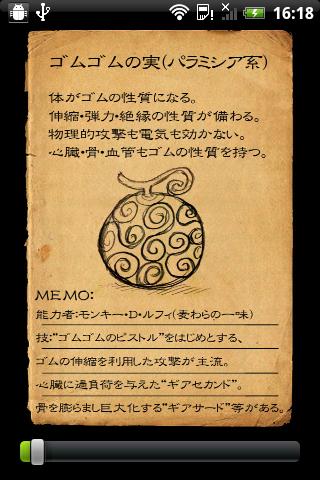 16:18
ゴムゴムの実(パラミシア系)
体がゴムの性質になる。
伸縮・弾力・絶縁の性質が備わる。
物理的攻撃も電気も効かない。
心臓・骨・血管もゴムの性質を持つ。
MEMO:
能力者:モンキー・D・ルフィ(麦わらの一味)
技:“ゴムゴムのピストル”をはじめとする、
ゴムの伸縮を利用した攻撃が主流。
心臓に過負荷を与えた“ギアセカンド”。
骨を膨らまし巨大化する“ギアサード”等がある。